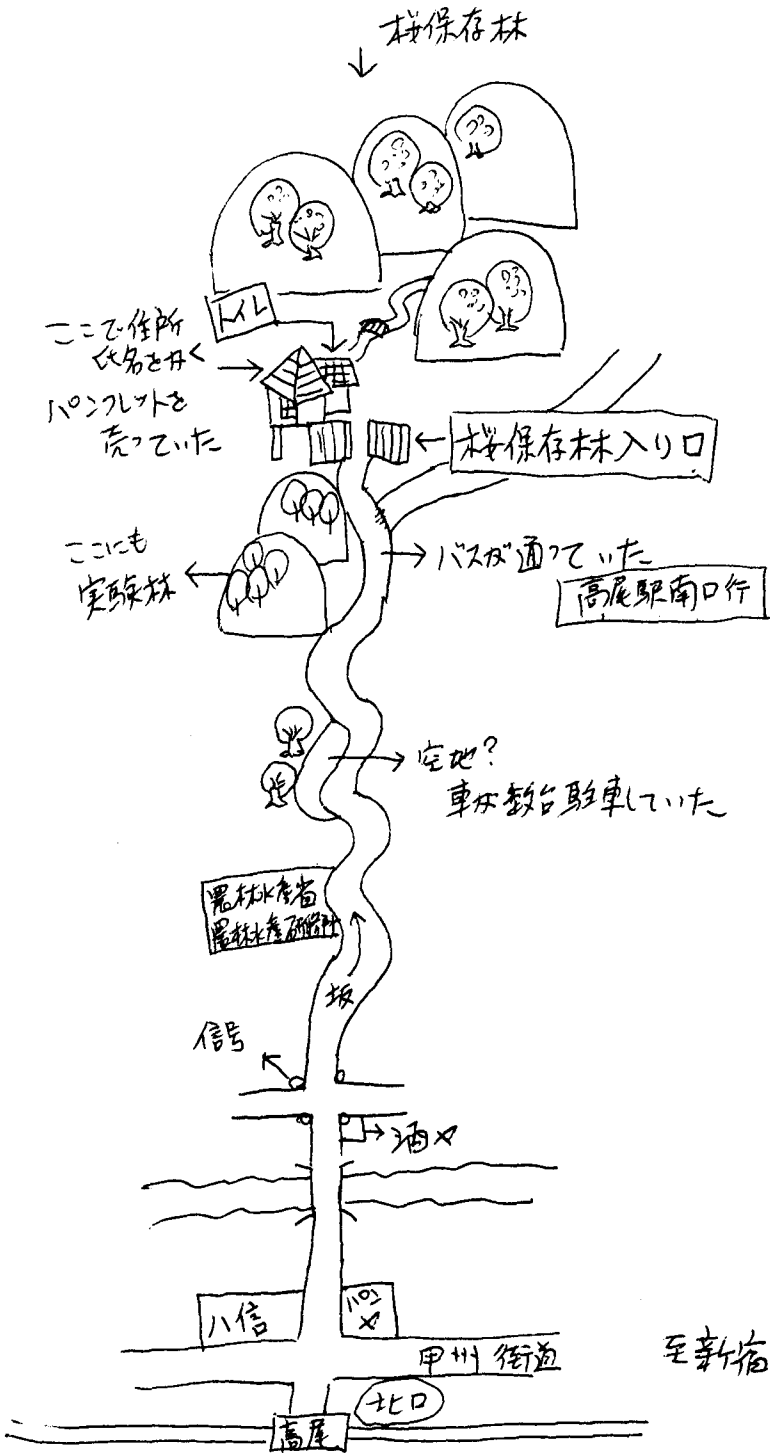 桜保存林
トイレ
ここで住所
氏名をかく
パンフレットを
売っていた
桜保存林入り口
ここにも
実験林
バスが通っていた
高尾駅南口行
空地?
車が数台駐車していた
農林水産省
農林水産研修所
坂
信号
酒や
八信
パン
や
甲州街道
至新宿
北口
高尾